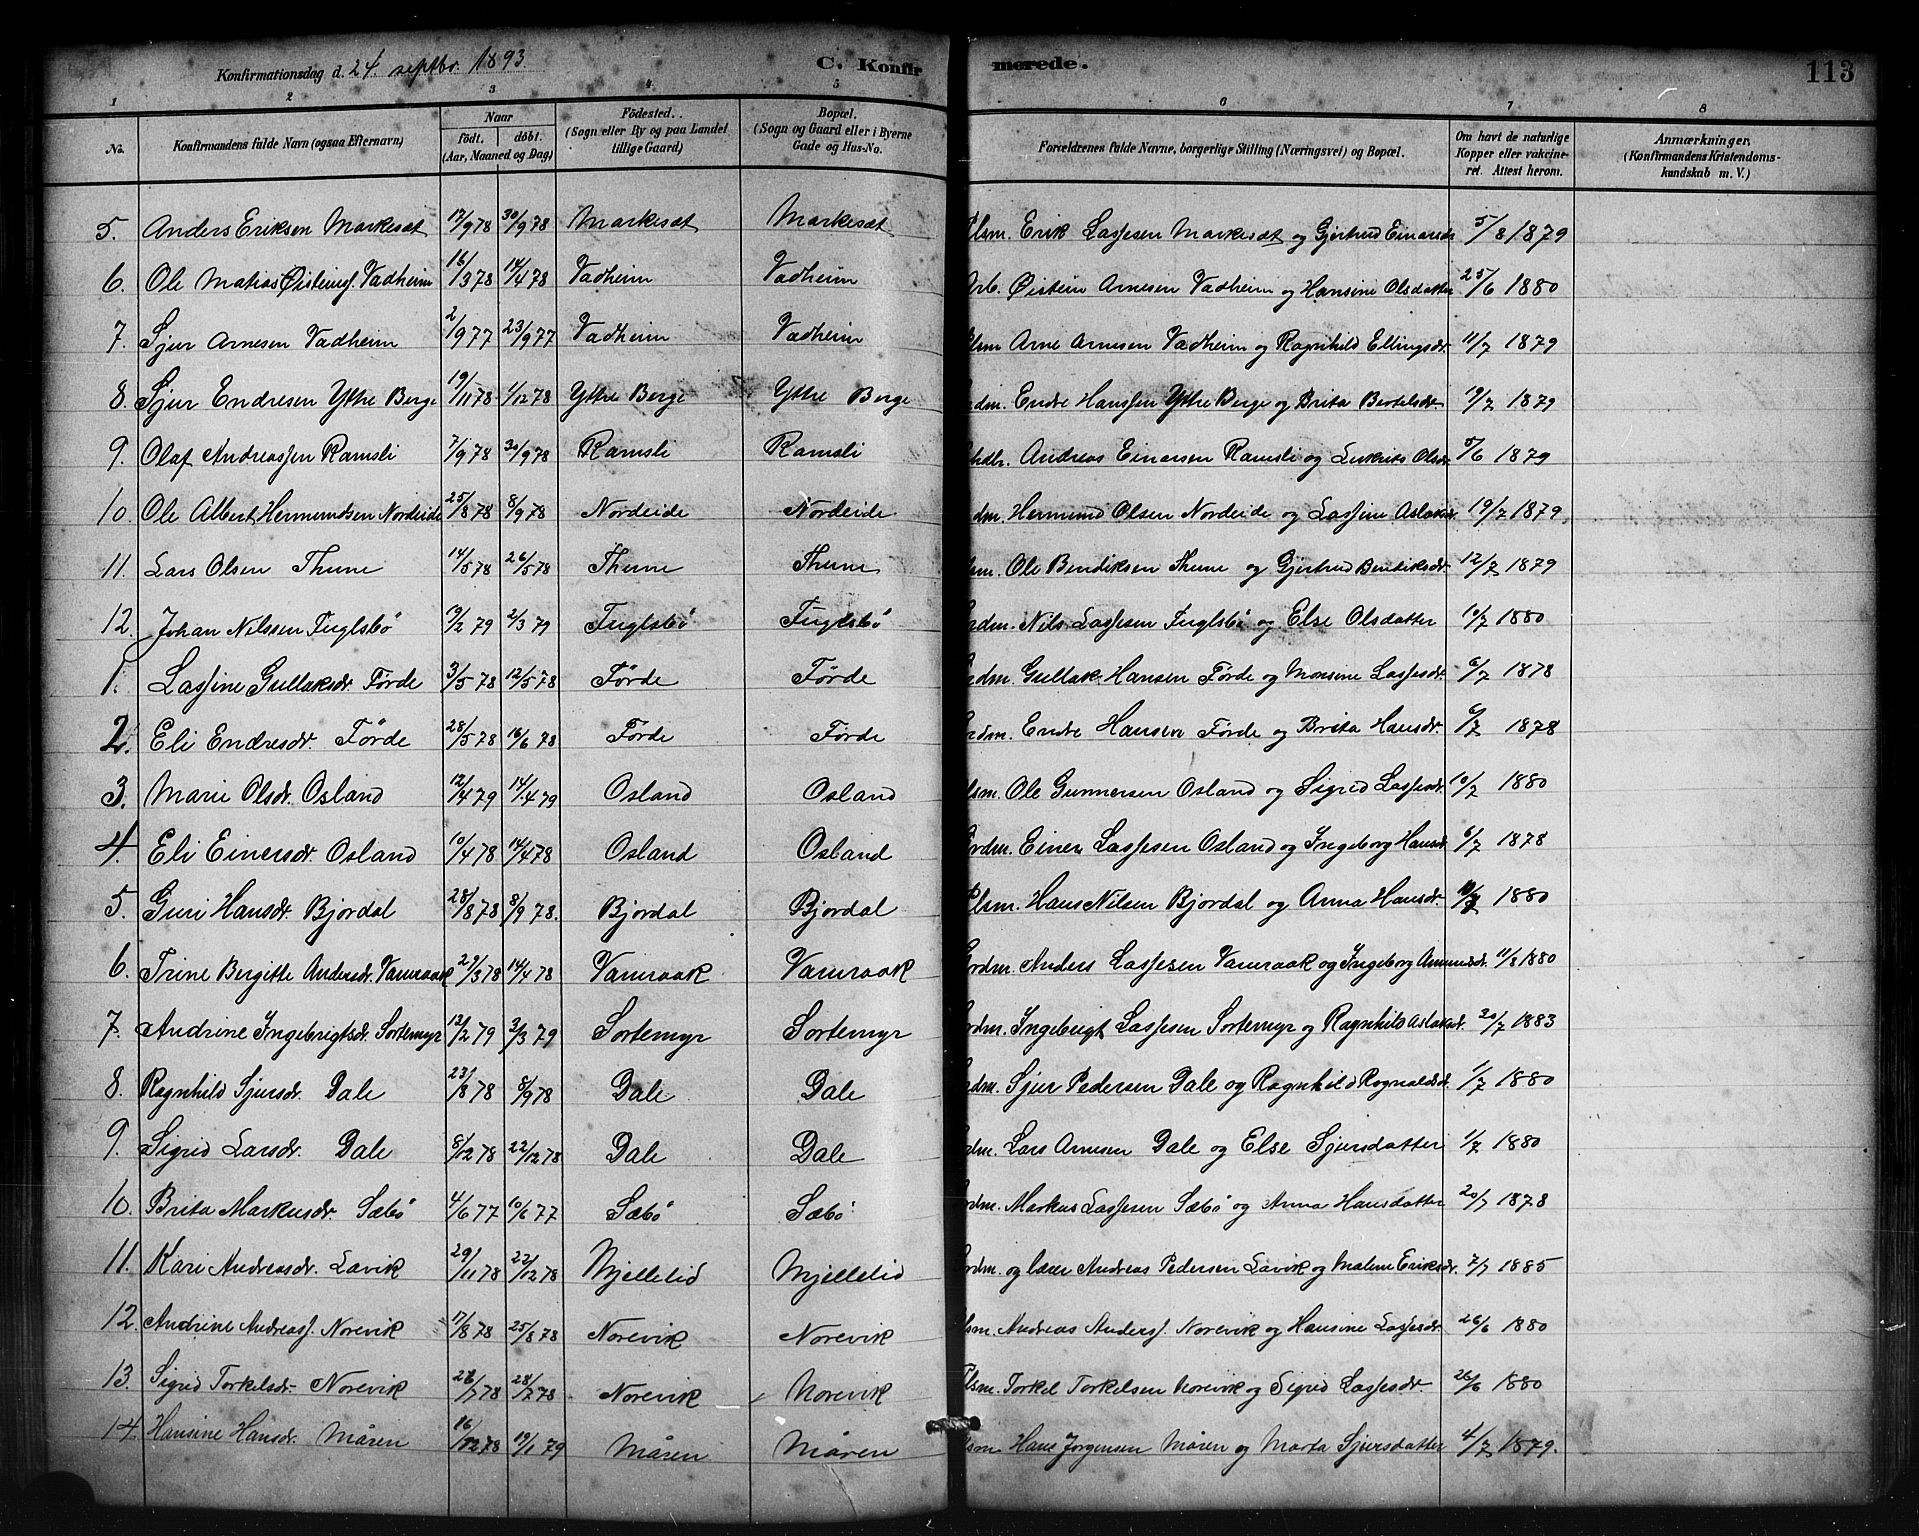 Konfirmationsdag d. 24. septbr. 1893 C. Konfir merede. 113
1 2 3 4. 5 6 7 8
No. Konfirmandens fulde Navn (ogsaa Efternavn) Naar født. døbt. (Aar, Maaned og Dag) Fødested. (Sogn eller By og paa Landet tillige Gaard) Bopæl. (Sogn og Gaard eller i Byerne Gade og Hus-No. Forældrenes fulde Navne, borgerlige Stilling (Næringsvei) og Bopæl. Om havt de naturlige Kopper eller vakcineret. Attest herom. Anmærkninger, (Konfirmandens Kristendomskundskab m. V.)
5. Anders Eriksen Markesæt 17/9 78 30/9 78 Markesæt Markesæt Plsm. Erik Lassesen Markesæt og Gjertrud Einarsdr 5/8 1879
6. Ole Matias Øisteinsf. Vadheim 16/3 78 14/4 78 Vadheim Vadheim Arb. Øistein Arnesen Vadheim og Hansine Olsdatter 25/6 1880
7. Sjur Arnesen Vadheim 2/9 77 23/9 77 Vadheim Vadheim Plsm Arne Arnesen Vadheim og Ragnhild Ellingsdr. 11/7 1879
8. Sjur Endresen Ytre Berge 19/11 78 1/12 78 Ytre Berge Ytre Berge Grdm. Endre Hanssen Ytre Berge og Brita Bertelsdr. 9/7 1879
9. Olaf Andreassen Ramsli 7/9 78 30/9 78 Ramsli Ramsli Andreas Einarsen Ramsli og Olsdr 5/6 1879
10. Ole Albert Hermundsen Nordeide 25/8 78 8/9 78 Nordeide Nordeide Grdm. Hermund Olsen Nordeide og Lassine Aslaksdr. 19/7 1879
11. Lars Olsen Thune 14/5 78 26/5 78 Thune Thune Plsm. Ole Bendiksen Thune og Gjertrud Bendiksdr. 12/7 1879
12. Johan Nilssen Fuglsbø 19/2 79 2/3 79 Fuglsbø Fuglsbø Grdm. Nils Lassesen Fuglsbø og Else Olsdatter 10/7 1880
1. Lassine Gullaksdr. Førde 3/5 78 12/5 78 Førde Førde Grdm. Gullak Hansen Førde og Monsine Lassesdr. 6/7 1878
2. Eli Endresdr. Førde 28/5 78 16/6 78 Førde Førde Grdm. Endre Hansen Førde og Brita Hansdr. 6/7 1878
3. Marie Olsdr. Osland 12/4 79 14/4 79 Osland Osland Plsm. Ole Gunnersen Osland og Sigrid Lassesdr. 10/7 1880
4. Eli Einersdr. Osland 10/4 78 14/4 78 Osland Osland Grdm. Einer Lassesen Osland og Ingeborg Hansdr 6/7 1878
5. Guri Hansdr. Bjordal 28/8 78 8/9 78. Bjordal Bjordal Plsm. Hans Nilsen Bjordal og Anna Hansdr. 10/7 1880
6. Trine Bergitte Andersdr. Vamraak 27/3 78 14/4 78 Vamraak Vamraak Grdm. Anders Lassesen Vamraak og Ingeborg Amundsdr. 11/8 1880
7. Andrine Ingebrigtsdr. Sortemyr 13/2 79 2/3 79 Sortemyr Sortemyr Grdm. Ingebrigt Lassesen Sortemyr og Ragnhild Aslaksdr. 20/7 1883
8. Ragnhild Sjursdr. Dale 23/8 78 8/9 78 Dale Dale Grdm. Sjur Pedersen Dale og Ragnhild Ragnaldsdr. 1/7 1880
9. Sigrid Larsdr. Dale 8/12 78 22/12 78 Dale Dale Grdm. Lars Arnesen Dale og Else Sjursdatter 1/7 1880
10. Brita Markusdr. Sæbø 4/6 77 10/6 77 Sæbø Sæbø Grdm. Markus Lassesen Sæbø og Anna Hansdatter 20/7 1878
11. Kari Andreasdr. Lavik 29/11 78 22/12 78 Mjellelid Mjellelid Grdm. og lærer Andreas Pedersen Lavik og Malene Eriksdr. 7/7 1885
12. Andrine Andreasf. Norevik 17/8 78 25/8 78 Norevik Norevik Plsm. Andreas Andersf. Norevik og Hansine Lassesdr. 26/6 1880
13. Sigrid Torkelsdr. Norevik 26/7 78 28/7 78 Norevik Norevik Plsm. Torkel Torkelsen Norevik og Sigrid Lassesdr. 26/6 1880
14. Hansine Hansdr. Måren 16/12 78 19/1 79 Måren Måren Plsm Hans Jørgensen Måren og Marta Sjursdatter 4/7 1879.